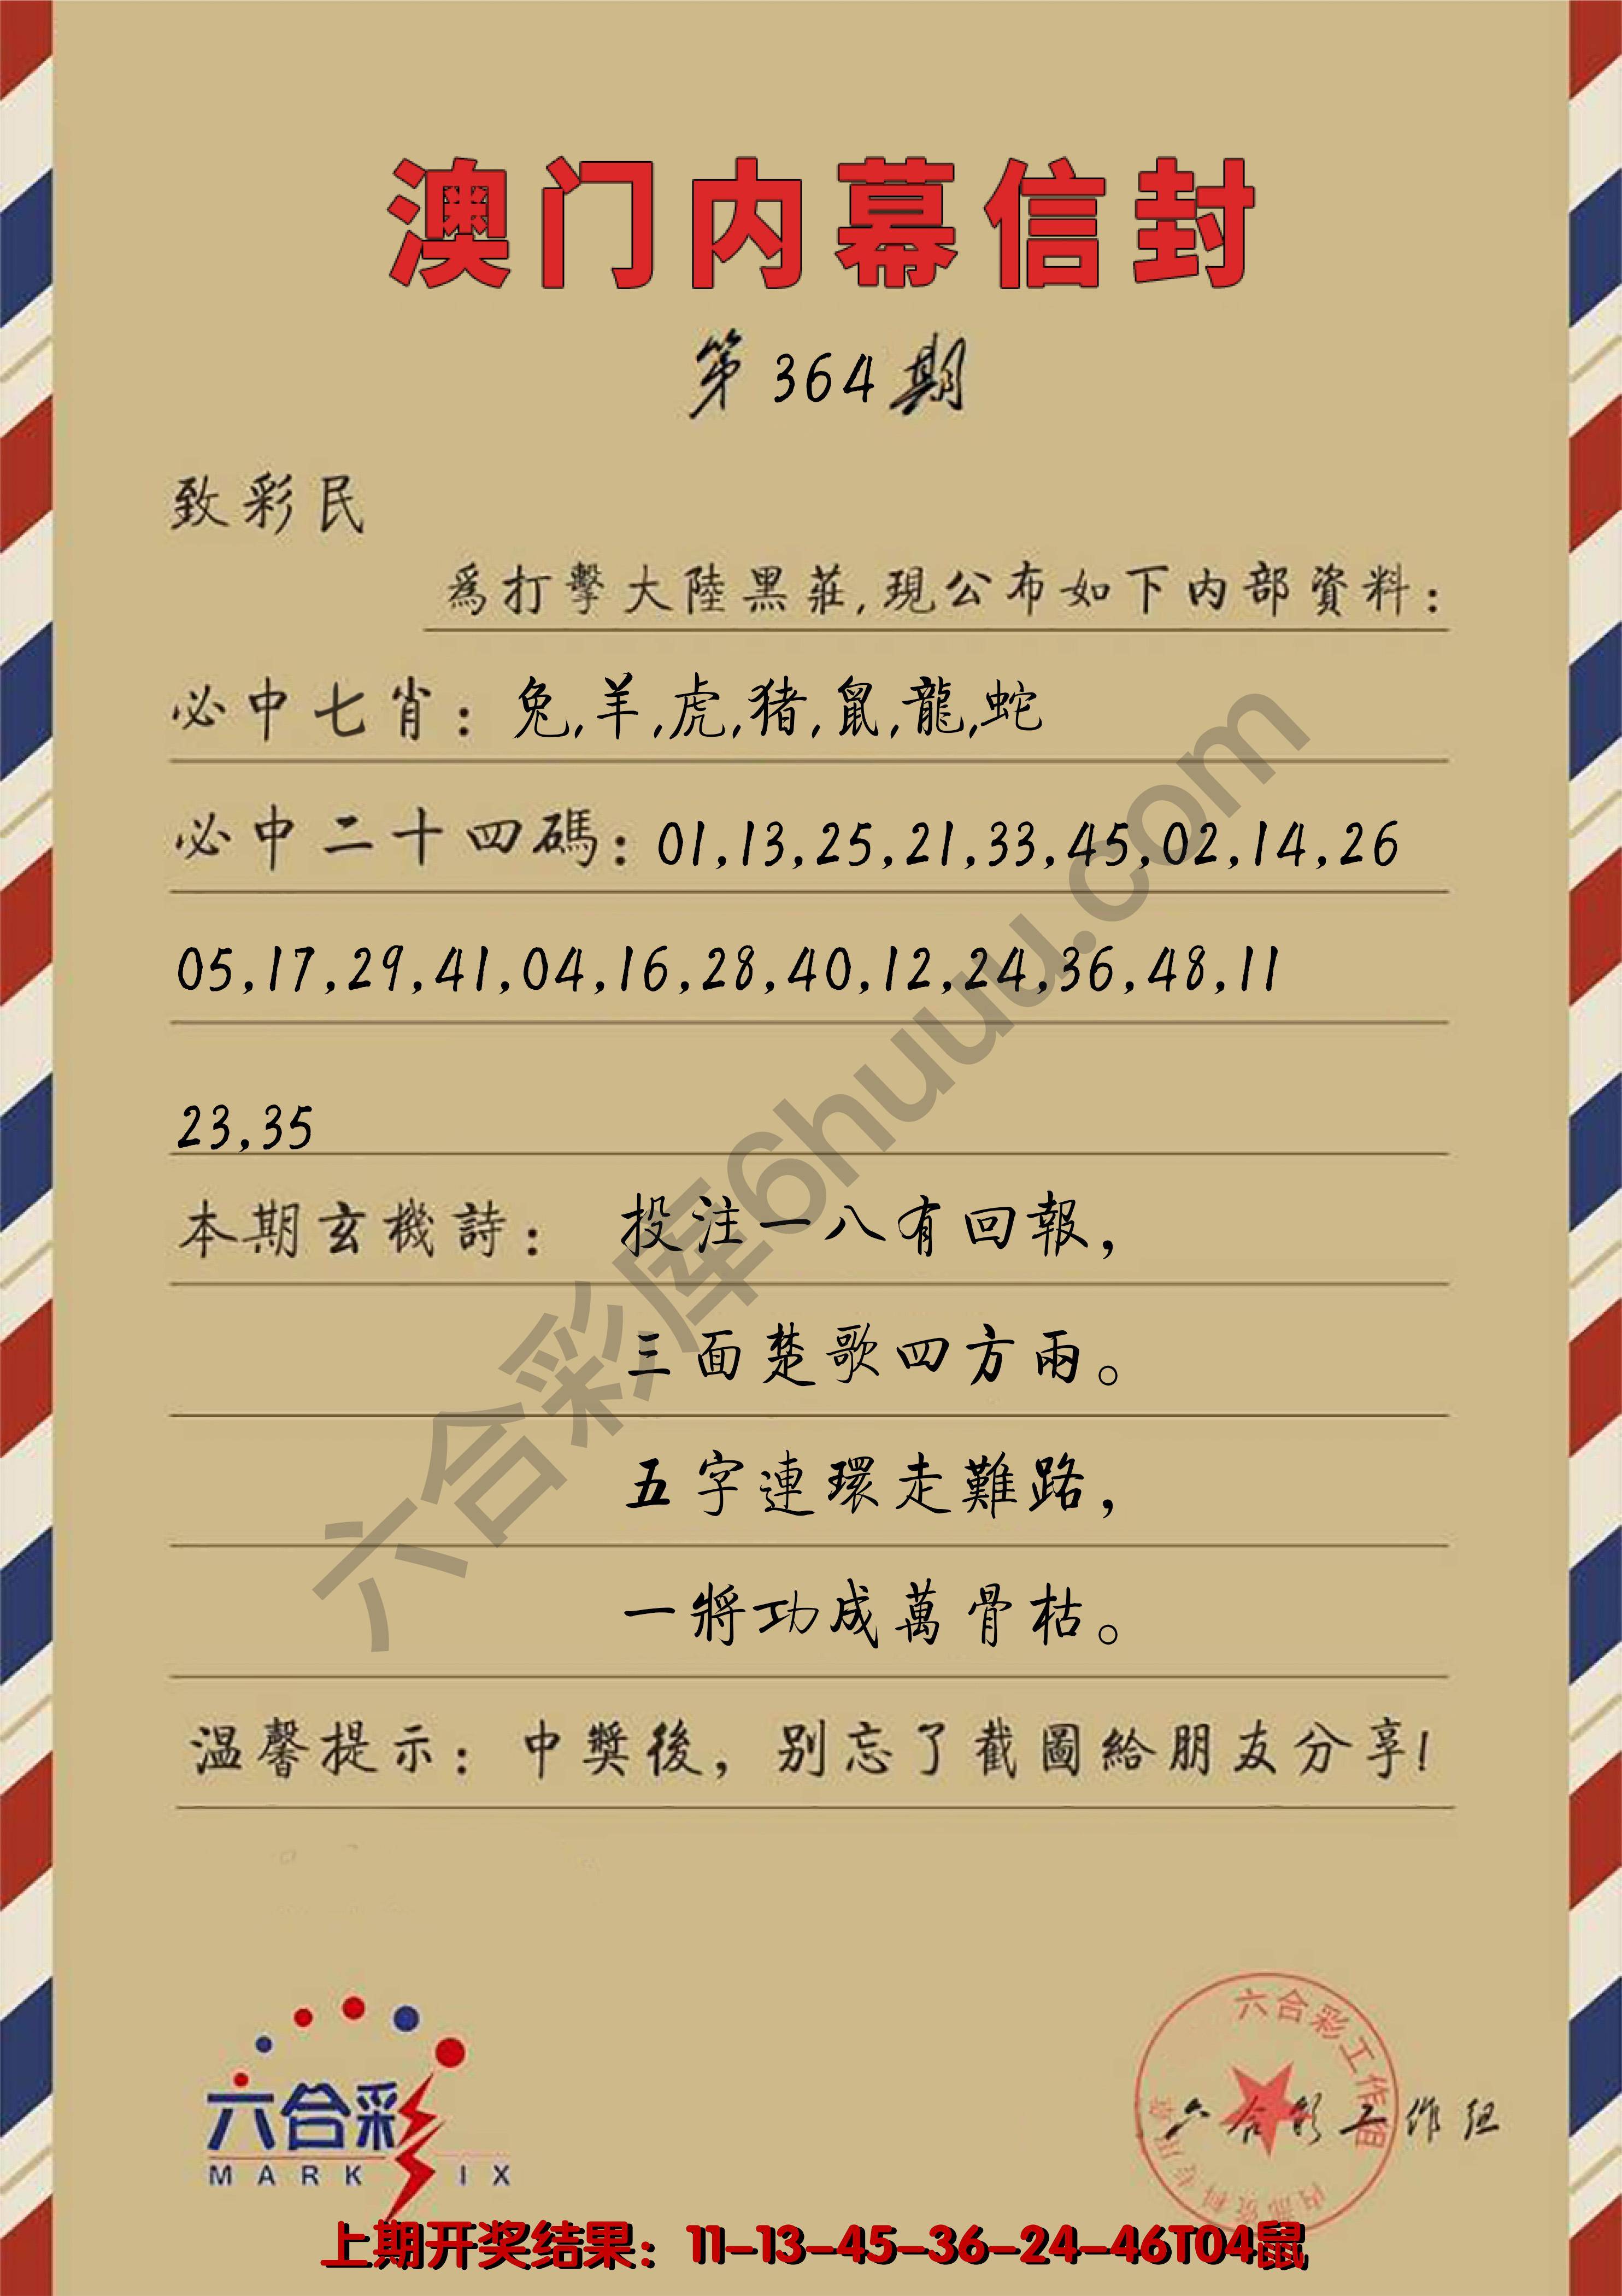 澳门内幕信封
第364期
致彩民
爲打擊大陸黑莊,現公布如下内部資料:
必中七肖: 兔,羊,虎,猪,鼠,龍,蛇
必中二十四碼: 01,13,25,21,33,45,02,14,26
05,17,29,41,04,16,28,40,12,24,36,48,11
23,35
本期玄機詩: 投注一八有回報,
三面楚歌四方雨。
五字連環走難路,
一將功成萬骨枯。
温馨提示: 中獎後, 别忘了截圖給朋友分享!
六合彩库6huuu.com
六合彩
MARK IX
六合彩工作组
六合彩工作组
上期开奖结果: 11-13-45-36-24-46T04鼠